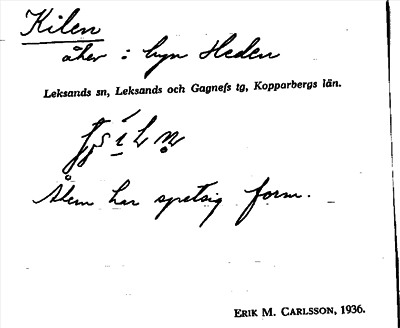 Kilen
åker i byn Heden
Leksands sn, Leksands och Gagnefs tg, Kopparbergs län.
har spetsig form.
ERIK M. CARLSSON, 1936.